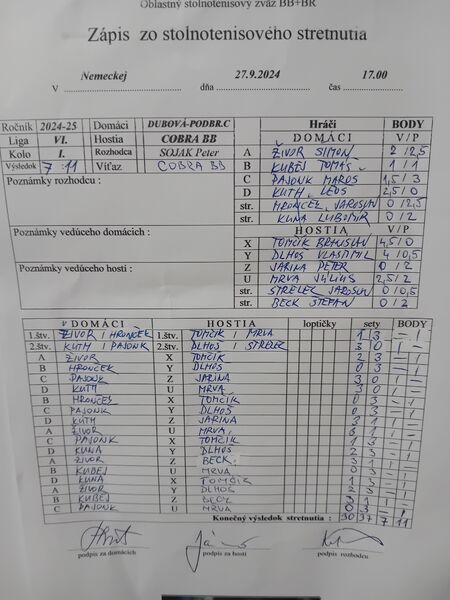 Oblastný stolnotenisový zväz BB+BR
Zápis zo stolnotenisového stretnutia
V Nemeckej dňa 27.9.2024 čas 17.00
Ročník 2024-25 Domáci DUBOVÁ-PODBR.C Hráči BODY
Liga VI. Hostia COBRA BB DOMÁCI V/P
Kolo I. Rozhodca SOJAK Peter A ŽIVOR SIMON 2 / 2,5
Výsledok 7:11 Víťaz COBRA BB B KUBEJ TOMÁŠ 1 / 1
Poznámky rozhodcu : C PAJONK MAROS 1,5 / 3
D KUTH LEOS 2,5 / 0
str. HRONČEK JAROSLAV 0 / 2,5
str. KUNA LUBOMIR 0 / 2
Poznámky vedúceho domácich : HOSTIA V/P
X TOMČIK BRANISLAV 4,5 / 0
Y DLHOS VLASTIMIL 4 / 0,5
Poznámky vedúceho hostí : Z JARINA PETER 0 / 2
U MRVA JÚLIUS 2,5 / 2
str. STRELEZ JAROSLAV 0 / 0,5
str. BECK STEPAN 0 / 2
DOMÁCI HOSTIA loptičky sety BODY
1.štv. ŽIVOR / HRONČEK 1.štv. TOMČIK / MRVA 1 3 – 1
2.štv. KUTH / PAJONK 2.štv. DLHOS / STRELEZ 3 0 1 –
A ŽIVOR X TOMČIK 2 3 – 1
B HRONČEK Y DLHOS 0 3 – 1
C PAJONK Z JARINA 3 0 1 –
D KUTH U MRVA 3 0 1 –
B HRONČEK X TOMČIK 0 3 – 1
C PAJONK Y DLHOS 0 3 – 1
D KUTH Z JARINA 3 1 1 –
A ŽIVOR U MRVA 3 1 –
C PAJONK X TOMČIK 1 3 – 1
D KUNA Y DLHOS 2 3 – 1
A ŽIVOR Z BECK 3 1 1 –
B KUBEJ U MRVA 0 3 – 1
D KUNA X TOMČIK 1 3 – 1
A ŽIVOR Y DLHOS 2 3 – 1
B KUBEJ Z BECK 3 1 –
C PAJONK U MRVA 0 3 – 1
Konečný výsledok stretnutia : 30 37 7 11
podpis za domácich podpis za hostí podpis rozhodcu